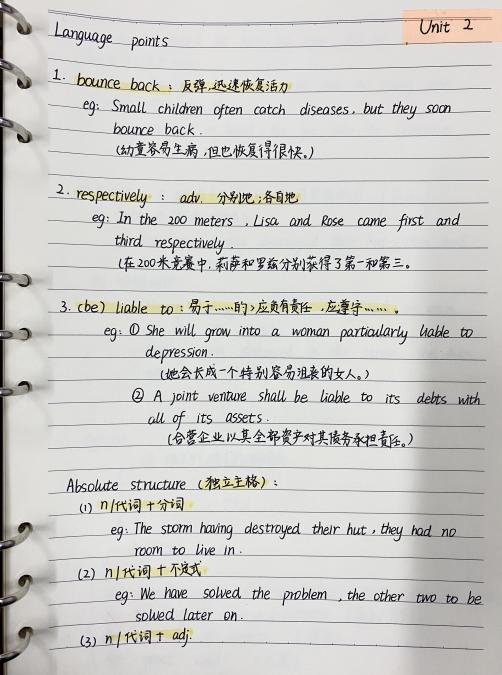 Unit 2
Language points
1. bounce back : 反弹,迅速恢复活力
eg: Small children often catch diseases, but they soon
bounce back.
(幼童容易生病,但也恢复得很快。)
2. respectively : adv. 分别地;各自地
eg: In the 200 meters, Lisa and Rose came first and
third respectively.
(在200米竞赛中,莉萨和罗兹分别获得了第一和第三。
3. (be) liable to : 易于……的;应负有责任,应遵守……。
eg: ① She will grow into a woman particularly liable to
depression.
(她会长成一个特别容易沮丧的女人。)
② A joint venture shall be liable to its debts with
all of its assets.
(合营企业以其全部资产对其债务承担责任。)
Absolute structure (独立主格):
(1) n/代词+分词
eg: The storm having destroyed their hut, they had no
room to live in.
(2) n/代词+不定式
eg: We have solved the problem, the other two to be
solved later on.
(3) n/代词+adj.